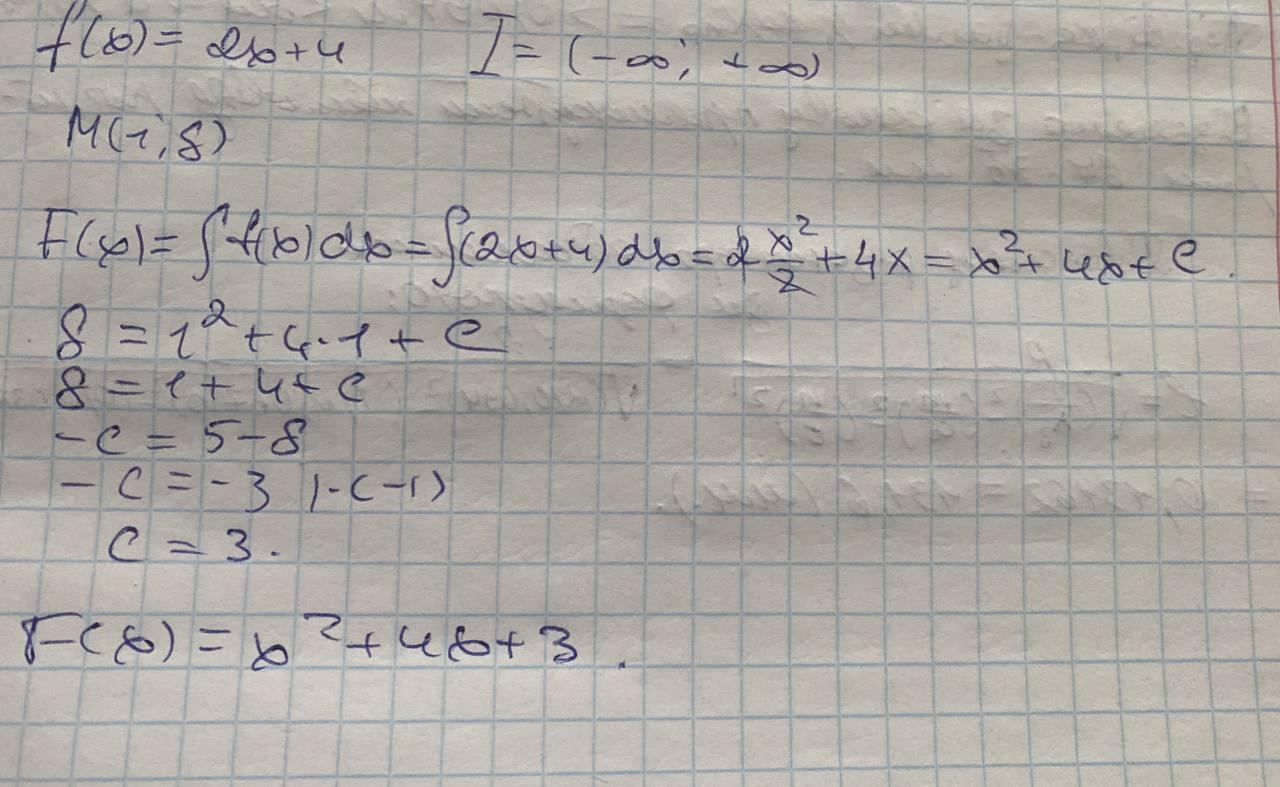 f(x) = 2x+4 I = (-∞; +∞)
M(1; 8)
F(x) = ∫f(x)dx = ∫(2x+4)dx = 2 x²/2 + 4x = x² + 4x + C.
8 = 1² + 4·1 + C
8 = 1 + 4 + C
-C = 5-8
-C = -3 |·(-1)
C = 3.
F(x) = x² + 4x + 3.